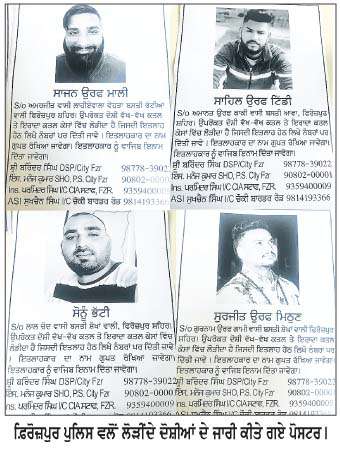 ਸਾਜਨ ਉਰਫ ਮਾਲੀ
S/o ਅਮਰਜੀਤ ਵਾਸੀ ਲਾਹੌਰੀਆਂ ਵੇਹੜਾ ਬਸਤੀ ਭੱਟੀਆਂ
ਵਾਲੀ ਫਿਰੋਜ਼ਪੁਰ ਸ਼ਹਿਰ। ਉਪਰੋਕਤ ਦੋਸ਼ੀ ਵੱਖ-ਵੱਖ ਕਤਲ
ਤੇ ਇਰਾਦਾ ਕਤਲ ਕੇਸਾਂ ਵਿੱਚ ਲੋੜੀਂਦਾ ਹੈ ਜਿਸਦੀ ਇਤਲਾਹ
ਹੇਠ ਲਿਖੇ ਨੰਬਰਾਂ ਪਰ ਦਿੱਤੀ ਜਾਵੇ । ਇਤਲਾਹਕਾਰ ਦਾ ਨਾਮ
ਗੁਪਤ ਰੱਖਿਆ ਜਾਵੇਗਾ। ਇਤਲਾਹਕਾਰ ਨੂੰ ਵਾਜਿਬ ਇਨਾਮ
ਦਿੱਤਾ ਜਾਵੇਗਾ।
ਸ਼੍ਰੀ ਬਰਿੰਦਰ ਸਿੰਘ DSP/City Fzr 98778-39022
ਇੰਸ. ਮਨੋਜ ਕੁਮਾਰ SHO, P.S. City Fzr 90802-00001
Ins. ਪਰਮਿੰਦਰ ਸਿੰਘ I/C CIA ਸਟਾਫ, FZR. 9359400009
ASI ਸੁਖਚੈਨ ਸਿੰਘ I/C ਚੌਕੀ ਬਾਰਡਰ ਰੋਡ 9814193366
ਸਾਹਿਲ ਉਰਫ ਟਿੰਡੀ
S/o ਅਮਾਨਤ ਉਰਫ ਵਾਸੀ ਬਸਤੀ ਆਵਾ, ਫਿਰੋਜ਼ਪੁਰ
ਸ਼ਹਿਰ। ਉਪਰੋਕਤ ਦੋਸ਼ੀ ਵੱਖ-ਵੱਖ ਕਤਲ ਤੇ ਇਰਾਦਾ ਕਤਲ
ਕੇਸਾਂ ਵਿੱਚ ਲੋੜੀਂਦਾ ਹੈ ਜਿਸਦੀ ਇਤਲਾਹ ਹੇਠ ਲਿਖੇ ਨੰਬਰਾਂ
ਪਰ ਦਿੱਤੀ ਜਾਵੇ । ਇਤਲਾਹਕਾਰ ਦਾ ਨਾਮ ਗੁਪਤ ਰੱਖਿਆ
ਜਾਵੇਗਾ। ਇਤਲਾਹਕਾਰ ਨੂੰ ਵਾਜਿਬ ਇਨਾਮ ਦਿੱਤਾ ਜਾਵੇਗਾ।
ਸ਼੍ਰੀ ਬਰਿੰਦਰ ਸਿੰਘ DSP/City Fzr 98778-39022
ਇੰਸ. ਮਨੋਜ ਕੁਮਾਰ SHO, P.S. City Fzr 90802-00001
Ins. ਪਰਮਿੰਦਰ ਸਿੰਘ I/C CIA ਸਟਾਫ, FZR. 9359400009
ASI ਸੁਖਚੈਨ ਸਿੰਘ I/C ਚੌਕੀ ਬਾਰਡਰ ਰੋਡ 9814193366
ਸੋਨੂੰ ਭੱਟੀ
S/o ਲਾਲ ਚੰਦ ਵਾਸੀ ਬਸਤੀ ਸ਼ੇਖਾਂ ਵਾਲੀ, ਫਿਰੋਜ਼ਪੁਰ ਸ਼ਹਿਰ।
ਉਪਰੋਕਤ ਦੋਸ਼ੀ ਵੱਖ-ਵੱਖ ਕਤਲ ਤੇ ਇਰਾਦਾ ਕਤਲ ਕੇਸਾਂ ਵਿੱਚ
ਲੋੜੀਂਦਾ ਹੈ ਜਿਸਦੀ ਇਤਲਾਹ ਹੇਠ ਲਿਖੇ ਨੰਬਰਾਂ ਪਰ ਦਿੱਤੀ ਜਾਵੇ
। ਇਤਲਾਹਕਾਰ ਦਾ ਨਾਮ ਗੁਪਤ ਰੱਖਿਆ ਜਾਵੇਗਾ।
ਸ਼੍ਰੀ ਬਰਿੰਦਰ ਸਿੰਘ DSP/City Fzr 98778-39022
ਇੰਸ. ਮਨੋਜ ਕੁਮਾਰ SHO, P.S. City Fzr 90802-00001
Ins. ਪਰਮਿੰਦਰ ਸਿੰਘ I/C CIA ਸਟਾਫ, FZR. 9359400009
ਸੁਰਜੀਤ ਉਰਫ ਮਿਠੁਣ
S/o ਗੁਰਨਾਮ ਉਰਫ ਗਾਮੀ ਵਾਸੀ ਬਸਤੀ ਸ਼ੇਖਾਂ ਵਾਲੀ ਫਿਰੋਜ਼ਪੁਰ
ਸ਼ਹਿਰ। ਉਪਰੋਕਤ ਦੋਸ਼ੀ ਵੱਖ-ਵੱਖ ਕਤਲ ਤੇ ਇਰਾਦਾ ਕਤਲ
ਕੇਸਾਂ ਵਿੱਚ ਲੋੜੀਂਦਾ ਹੈ ਜਿਸਦੀ ਇਤਲਾਹ ਹੇਠ ਲਿਖੇ ਨੰਬਰਾਂ ਪਰ
ਦਿੱਤੀ ਜਾਵੇ । ਇਤਲਾਹਕਾਰ ਦਾ ਨਾਮ ਗੁਪਤ ਰੱਖਿਆ ਜਾਵੇਗਾ।
ਸ਼੍ਰੀ ਬਰਿੰਦਰ ਸਿੰਘ DSP/City Fzr 98778-39022
ਇੰਸ. ਮਨੋਜ ਕੁਮਾਰ SHO, P.S. City Fzr 90802-00001
Ins. ਪਰਮਿੰਦਰ ਸਿੰਘ I/C CIA ਸਟਾਫ, FZR. 9359400009
ASI ਸੁਖਚੈਨ ਸਿੰਘ I/C ਚੌਕੀ ਬਾਰਡਰ ਰੋਡ 9814193366
ਫ਼ਿਰੋਜ਼ਪੁਰ ਪੁਲਿਸ ਵਲੋਂ ਲੋੜੀਂਦੇ ਦੋਸ਼ੀਆਂ ਦੇ ਜਾਰੀ ਕੀਤੇ ਗਏ ਪੋਸਟਰ।